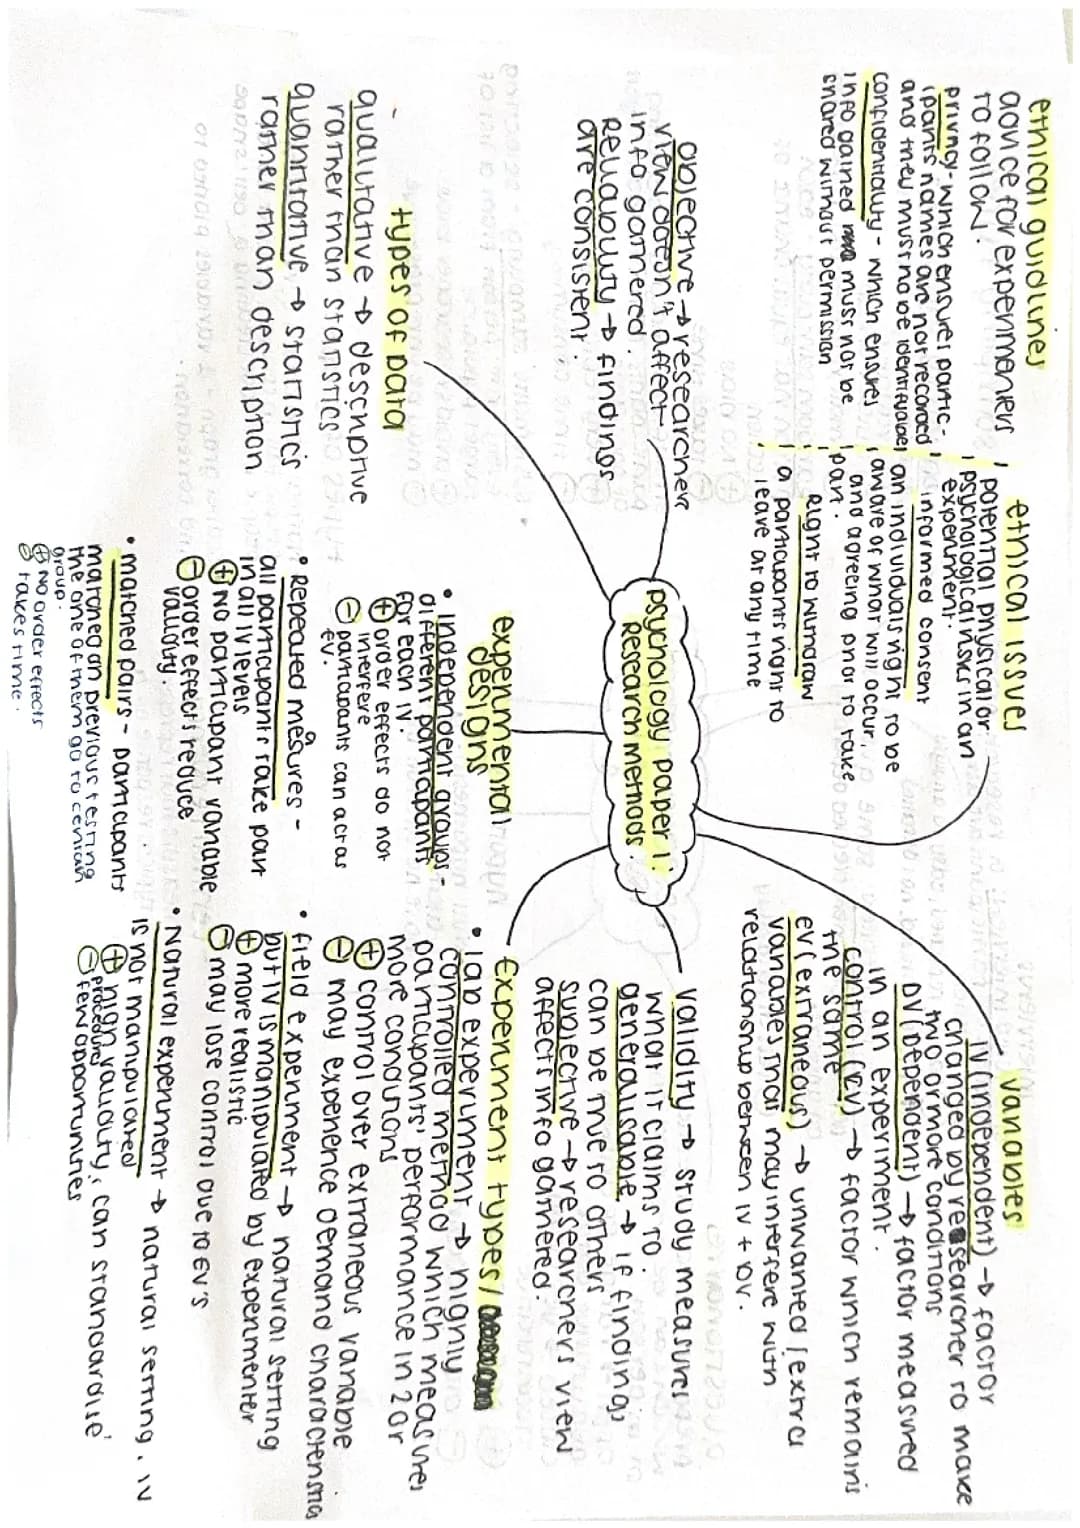 psychology paper 1:
Research methods.
ethical guidlines
advice for experimenters
to follow.
privacy - which ensures partic-
ipants names are not recorded
and they must no be identifyable
confidentiality - which ensures
info gained must not be
shared without permission
ethical issues
potential physical or
psychological risks in an
experiment.
informed consent
an individuals right to be
aware of what will occur,
and agreeing prior to take
part.
Right to withdraw
a participants right to
leave at any time
variables
IV (independent) → factor
changed by researcher to make
two or more conditions
DV (dependent) → factor measured
in an experiment.
control (CV) → factor which remains
the same
EV (extraneous) → unwanted/extra
variables that may interfere with
relationship between IV + DV.
objective → researcher
view doesn't affect
info gathered.
Reliability → findings
are consistent.
validity → study measures
what it claims to.
generalisable → if findings
can be true to others
subjective → researchers view
affects info gathered.
- types of Data
qualitative → descriptive
rather than statistics
quantitative → statistics
rather than description
experimental
designs
• independent groups -
different participants
for each IV.
⊕ order effects do not
interfere
⊖ participants can act as
EV.
• Repeated measures -
all participants take part
in all IV levels
⊕ NO participant variable
⊖ order effects reduce
validity.
• matched pairs - participants
matched on previous testing
the one of them go to certain
group.
⊕ NO order effects
⊖ takes time.
Experiment types /
• lab experiment → highly
controlled method which measures
participants' performance in 2 or
more conditions
⊕ control over extraneous variable
⊖ may experience demand characteristics
• field experiment → natural setting
but IV is manipulated by experimenter
⊕ more realistic
⊖ may lose control due to EV's
• Natural experiment → natural setting. IV
is not manipulated
⊕ high validity, can standardise
procedure
⊖ few opportunities